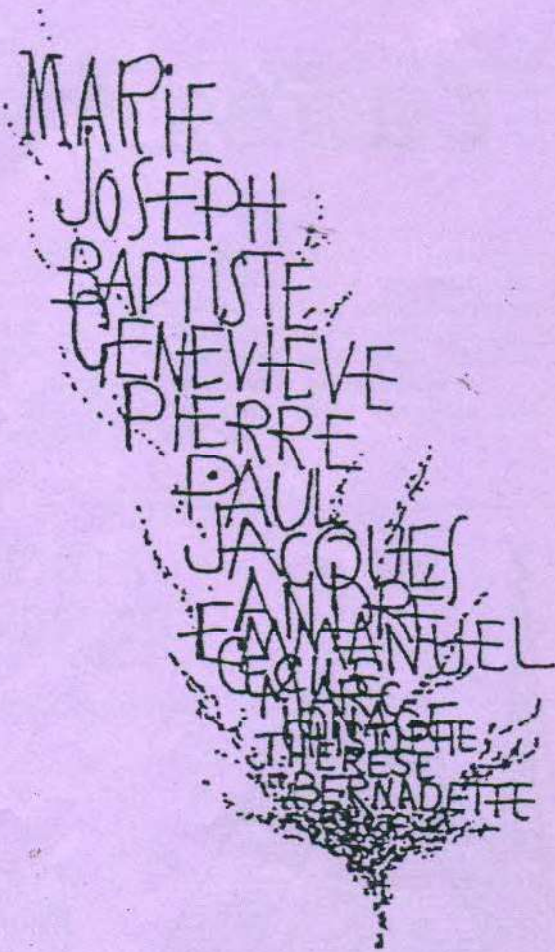 MARIE
JOSEPH
BAPTISTE
GENEVIEVE
PIERRE
PAUL
JACQUES
ANDRE
EMMANUEL
CECILE
THERESE
BERNADETTE